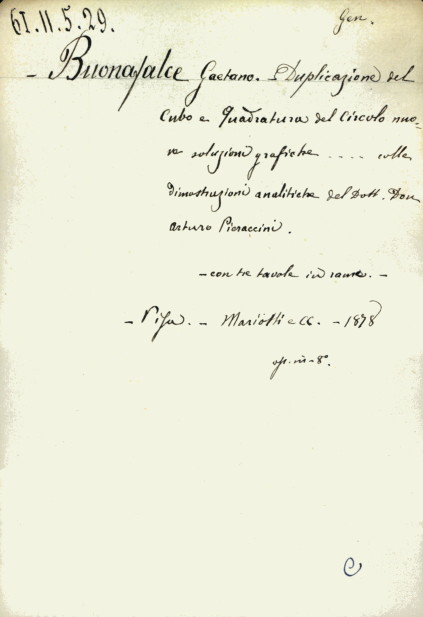 61.11.5.29.
Gen.
- Buonafalce Gaetano. - Duplicazione del
Cubo e Quadratura del Circolo nuo-
ve soluzioni grafiche .... colle
dimostruzioni analitiche del Dott. Don
Arturo Pieraccini.
- con tre tavole in rame. -
- Pisa. - Mariotti e C. - 1878
op. in-8°.
C